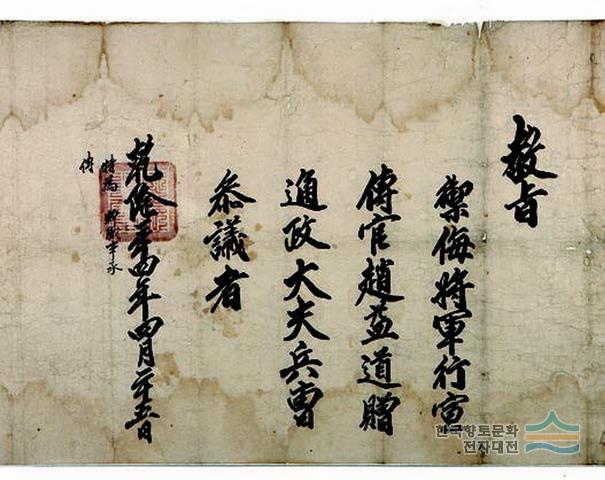 教旨
禦侮將軍行宣
傳官趙益道贈
通政大夫兵曹
參議者
乾隆二十四年四月二十五日
特爲 贈職事承
傳
한국향토문화
전자대전